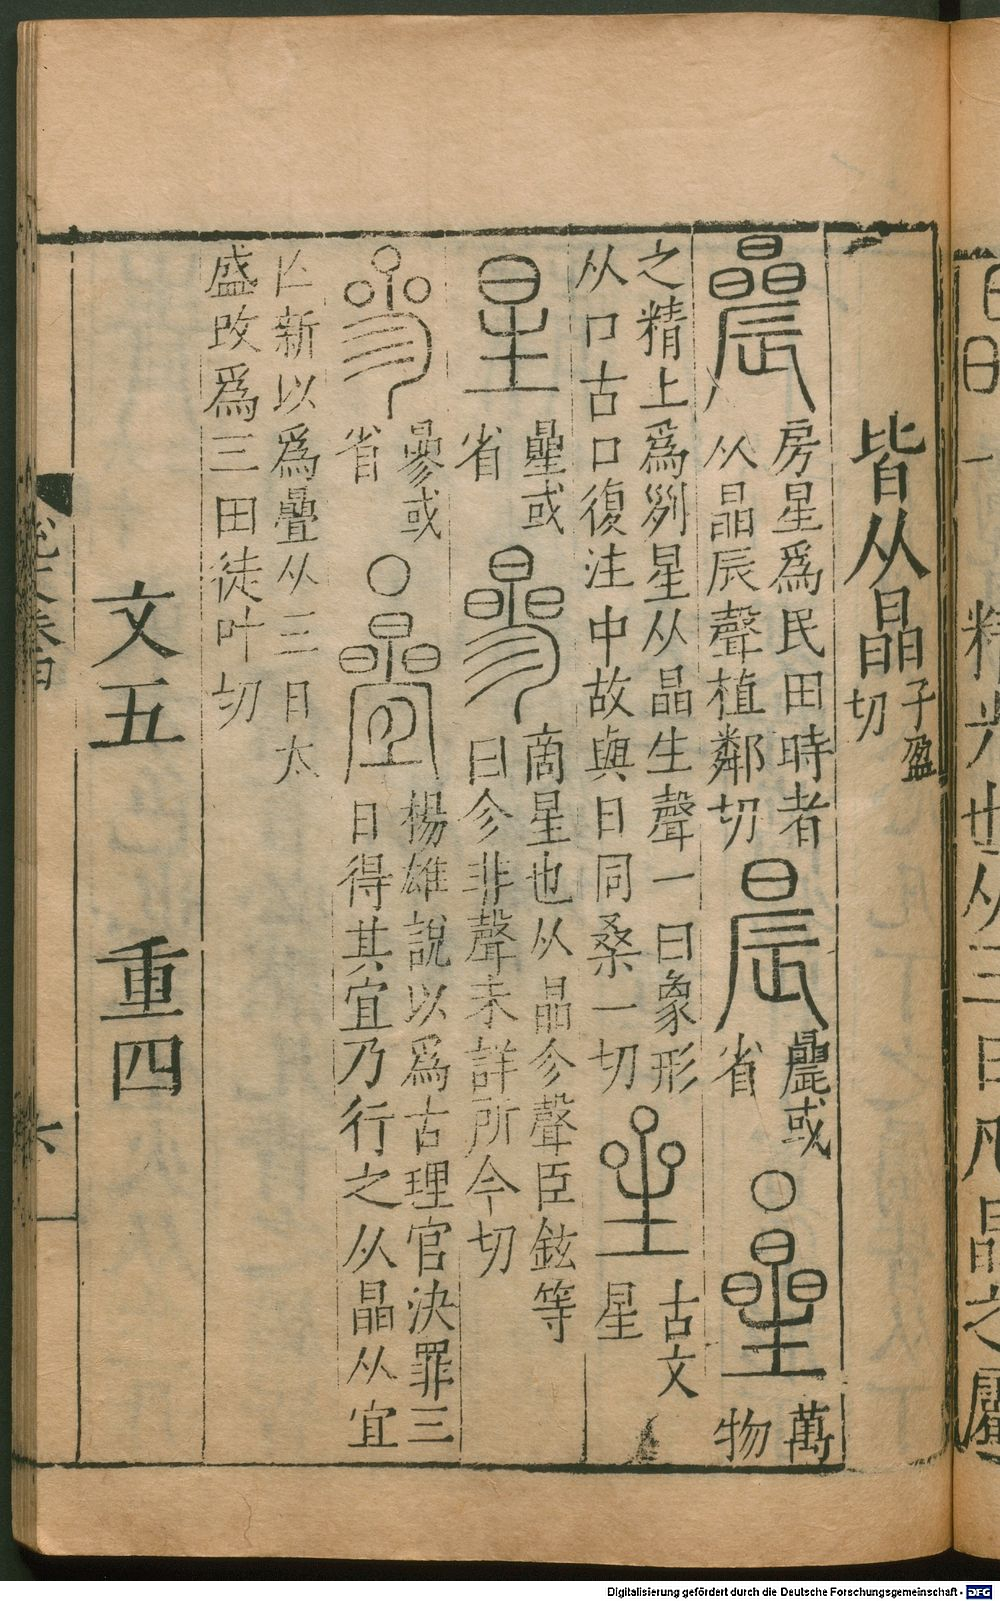 精光也从三日凡晶之屬
皆从晶子盈切
曟房星爲民田時者从晶辰聲植鄰切晨曟或省○曐萬物
之精上爲列星从晶生聲一曰象形从口古口復注中故與日同桑一切𠻖古文星
星曐或省曑商星也从晶㐱聲臣鉉等曰㐱非聲未詳所今切
參曑或省○疊楊雄說以爲古理官決罪三日得其宜乃行之从晶从宜
亡新以爲疊从三日太盛改爲三田徒叶切
文五　重四
說文卷四　六
Digitalisierung gefördert durch die Deutsche Forschungsgemeinschaft - DFG